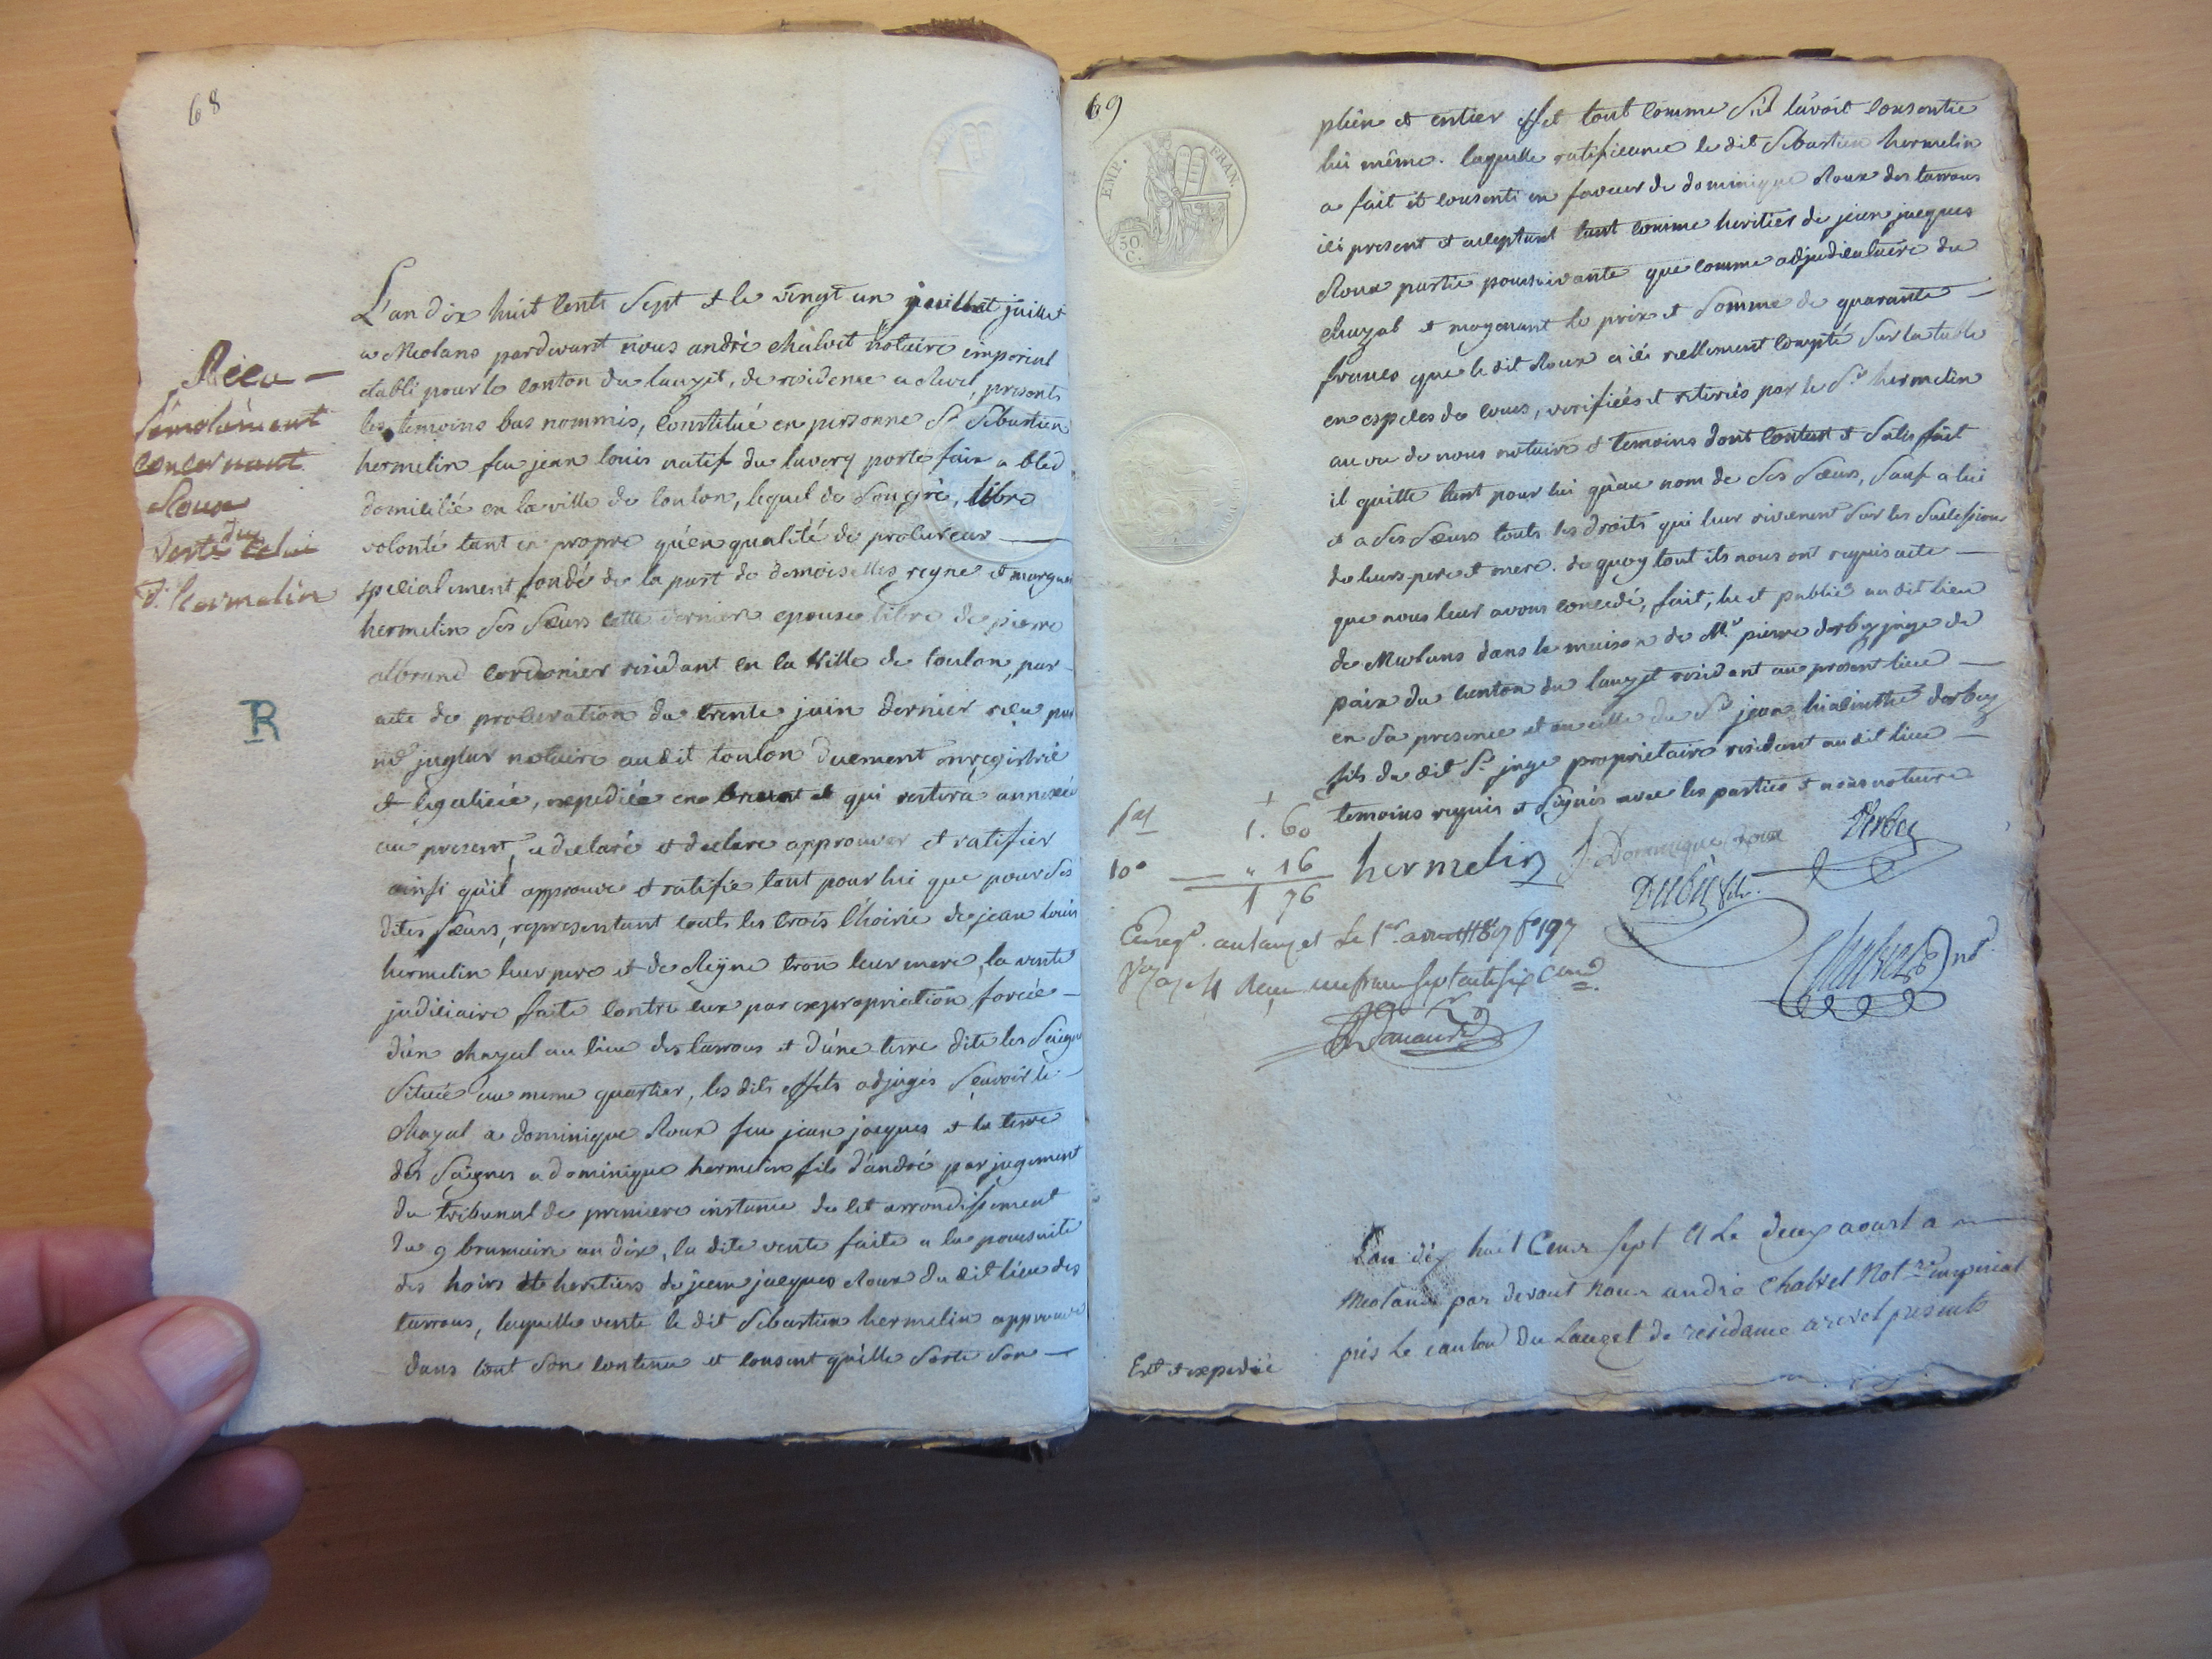 68
L'an dix huit cents sept et le vingt un juillet juillet
a Meolans pardevant nous andré chalvet notaire imperial
etabli pour le canton du lauzet, de residence a revel, presents
les temoins bas nommés, constitué en personne Sr Sébastien
hermelin feu jean louis natif du laverq porte faix a bled
domicilié en la ville de toulon, lequel de son gré, libre
volonté tant en propre qu'en qualité de procureur
specialement fondé de la part de demoiselles reyne et margue
hermelin ses sœurs cette derniere epouse libre de pierre
albrand cordonier residant en la ville de toulon, par
acte de procuration du trente juin dernier reçu par
me juglar notaire audit toulon duement enregistré
et legalisée, expediée en brevet et qui restera annexée
au present, a declaré et declare approuver et ratifier
ainsi qu'il approuve et ratifie tant pour lui que pour ses
dites sœurs, representant touts les trois l'hoirie de jean louis
hermelin leur pere et de Reyne tron leur mere, la vente
judiciaire faite contre eux par expropriation forcée
d'un chazal au lieu des tarrous et d'une terre dite les Saignes
située au meme quartier, les dits effets adjugés sçavoir le
chazal a dominique Roux feu jean jacques et la terre
des Saignes a dominique hermelin fils d'andré par jugement
du tribunal de premiere instance de cet arrondissement
du 9 brumaire an dix, la dite vente faite a la poursuite
des hoirs et heritiers de jean jacques Roux du dit lieu des
tarrous, laquelle vente le dit Sebastien hermelin approuve
dans tout son contenu et consent qu'elle sorte son
Réeu
concernant
Roux
du
d'hermelin
R
69
EMP. FRAN.
50
C.
plein et entier effet tout comme s'il l'avoit consentie
lui même. laquelle ratificance le dit Sebastien hermelin
a fait et consenti en faveur de dominique Roux des tarrous
ici present et acceptant tant comme heritier de jean jacques
Roux partie poursuivante que comme adjudicataire du
chazal et moyenant le prix et somme de quarante
francs que le dit Roux a ici reellement compté sur la table
en especes de cours, verifiées et retirés par le Sr hermelin
au vu de nous notaire et temoins dont content et satisfait
il quitte tant pour lui qu'au nom de ses sœurs, sauf a lui
et a ses sœurs touts les droits qui leur reviennent sur les successions
de leurs pere et mere. de quoy tout ils nous ont requis acte
que nous leur avons concedé, fait, lu et publié au dit lieu
de Meolans dans la maison de Mr pierre derbez juge de
paix du canton du lauzet residant au present lieu
en sa presence et en celle du Sr jean hiacinthe derbez
fils du dit Sr juge proprietaire residant au dit lieu
temoins requis et signés avec les parties et nous notaire
1. 60
10e " 16
1 76
hermelin Dominique Roux Derbez
Derbez
Chalvet not
Enregt. au lauzet le 1er aoust 1807 fo 197
Vo reçu un franc septante six cent
L'an dix huit cens sept et le deux aoust a
Meolans par devant nous andré chalvet notre imperial
pres le canton du Lauzet de residance a revel presents
Ext et expedié